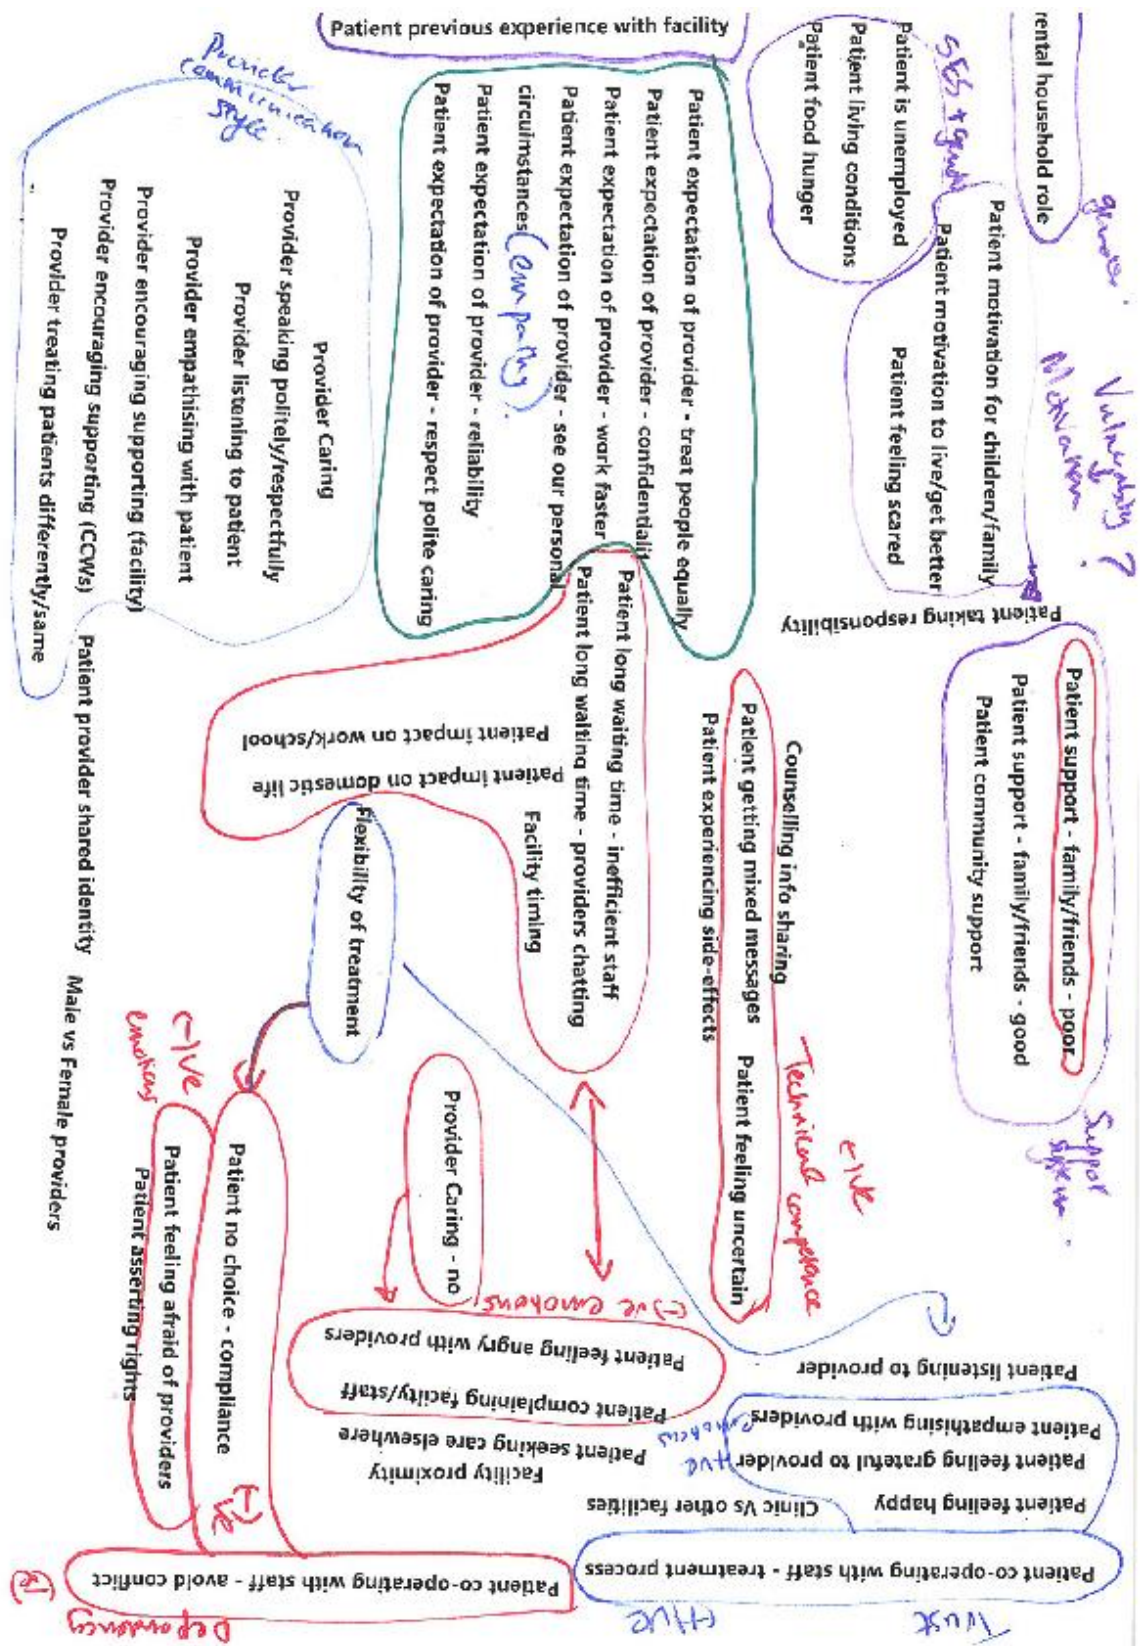 Patient previous experience with facility
rental household role
gender
SES + gender
Patient is unemployed
Patient living conditions
Patient food hunger
Vulnerability ?
Motivation
Patient motivation for children/family
Patient motivation to live/get better
Patient feeling scared
Patient taking responsibility
Patient expectation of provider - treat people equally
Patient expectation of provider - confidentialit
Patient expectation of provider - work faster
Patient expectation of provider - see our personal
circuimstances (empathy)
Patient expectation of provider - reliability
Patient expectation of provider - respect polite caring
Provider
communication
style
Provider Caring
Provider speaking politely/respectfully
Provider listening to patient
Provider empathising with patient
Provider encouraging supporting (facility)
Provider encouraging supporting (CCWs)
Provider treating patients differently/same
Patient support - family/friends - poor
Patient support - family/friends - good
Patient community support
Support
system
Counselling info sharing
Patient getting mixed messages
Patient feeling uncertain
Patient experiencing side-effects
Technical competence
-ive
Patient long waiting time - inefficient staff
Patient long waiting time - providers chatting
Facility timing
Patient impact on work/school
Patient impact on domestic life
Flexibility of treatment
Patient provider shared identity
Male vs Female providers
Provider Caring - no
(-)ve emotions
Patient feeling angry with providers
Patient complaining facility/staff
Patient seeking care elsewhere
Facility proximity
Clinic Vs other facilities
(-)ive
emotions
Patient no choice - compliance
Patient feeling afraid of providers
Patient asserting rights
(-)ve
Patient listening to provider
Patient empathising with providers
Patient feeling grateful to provider
Patient feeling happy
+ve
emotions
Patient co-operating with staff - treatment process
Patient co-operating with staff - avoid conflict
Trust
+ive
Dependency